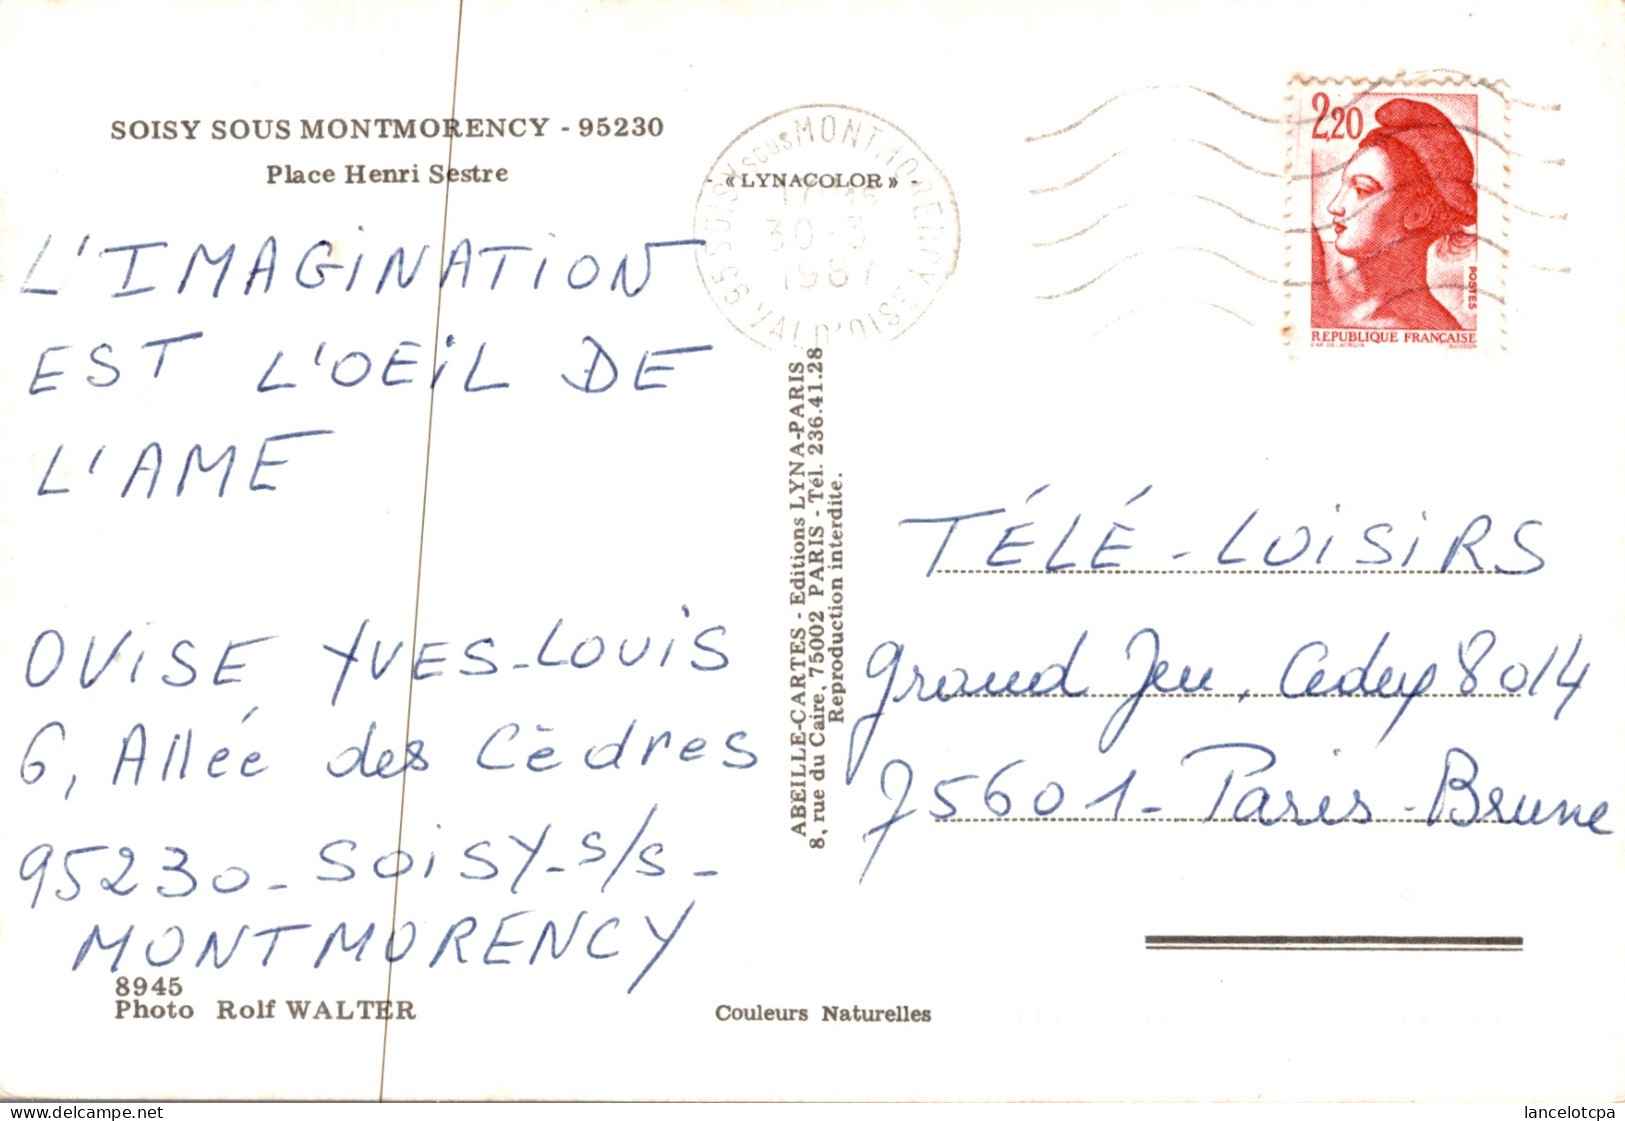 SOISY SOUS MONTMORENCY - 95230
Place Henri Sestre
L'IMAGINATION
EST L'OEIL DE
L'AME
OVISE YVES-LOUIS
6, Allée des Cèdres
95230 - SOISY-S/S-
MONTMORENCY
8945
Photo Rolf WALTER
- « LYNACOLOR » -
SOISY SOUS MONTMORENCY
30-3
1987
95 VAL D'OISE
ABEILLE-CARTES - Editions LYNA-PARIS
8, rue du Caire, 75002 PARIS - Tél. 236.41.28
Reproduction interdite.
Couleurs Naturelles
2,20
POSTES
REPUBLIQUE FRANÇAISE
TÉLÉ-LOISIRS
Grand Jeu, Cedex 8014
75601 - Paris-Brune
lancelotcpa